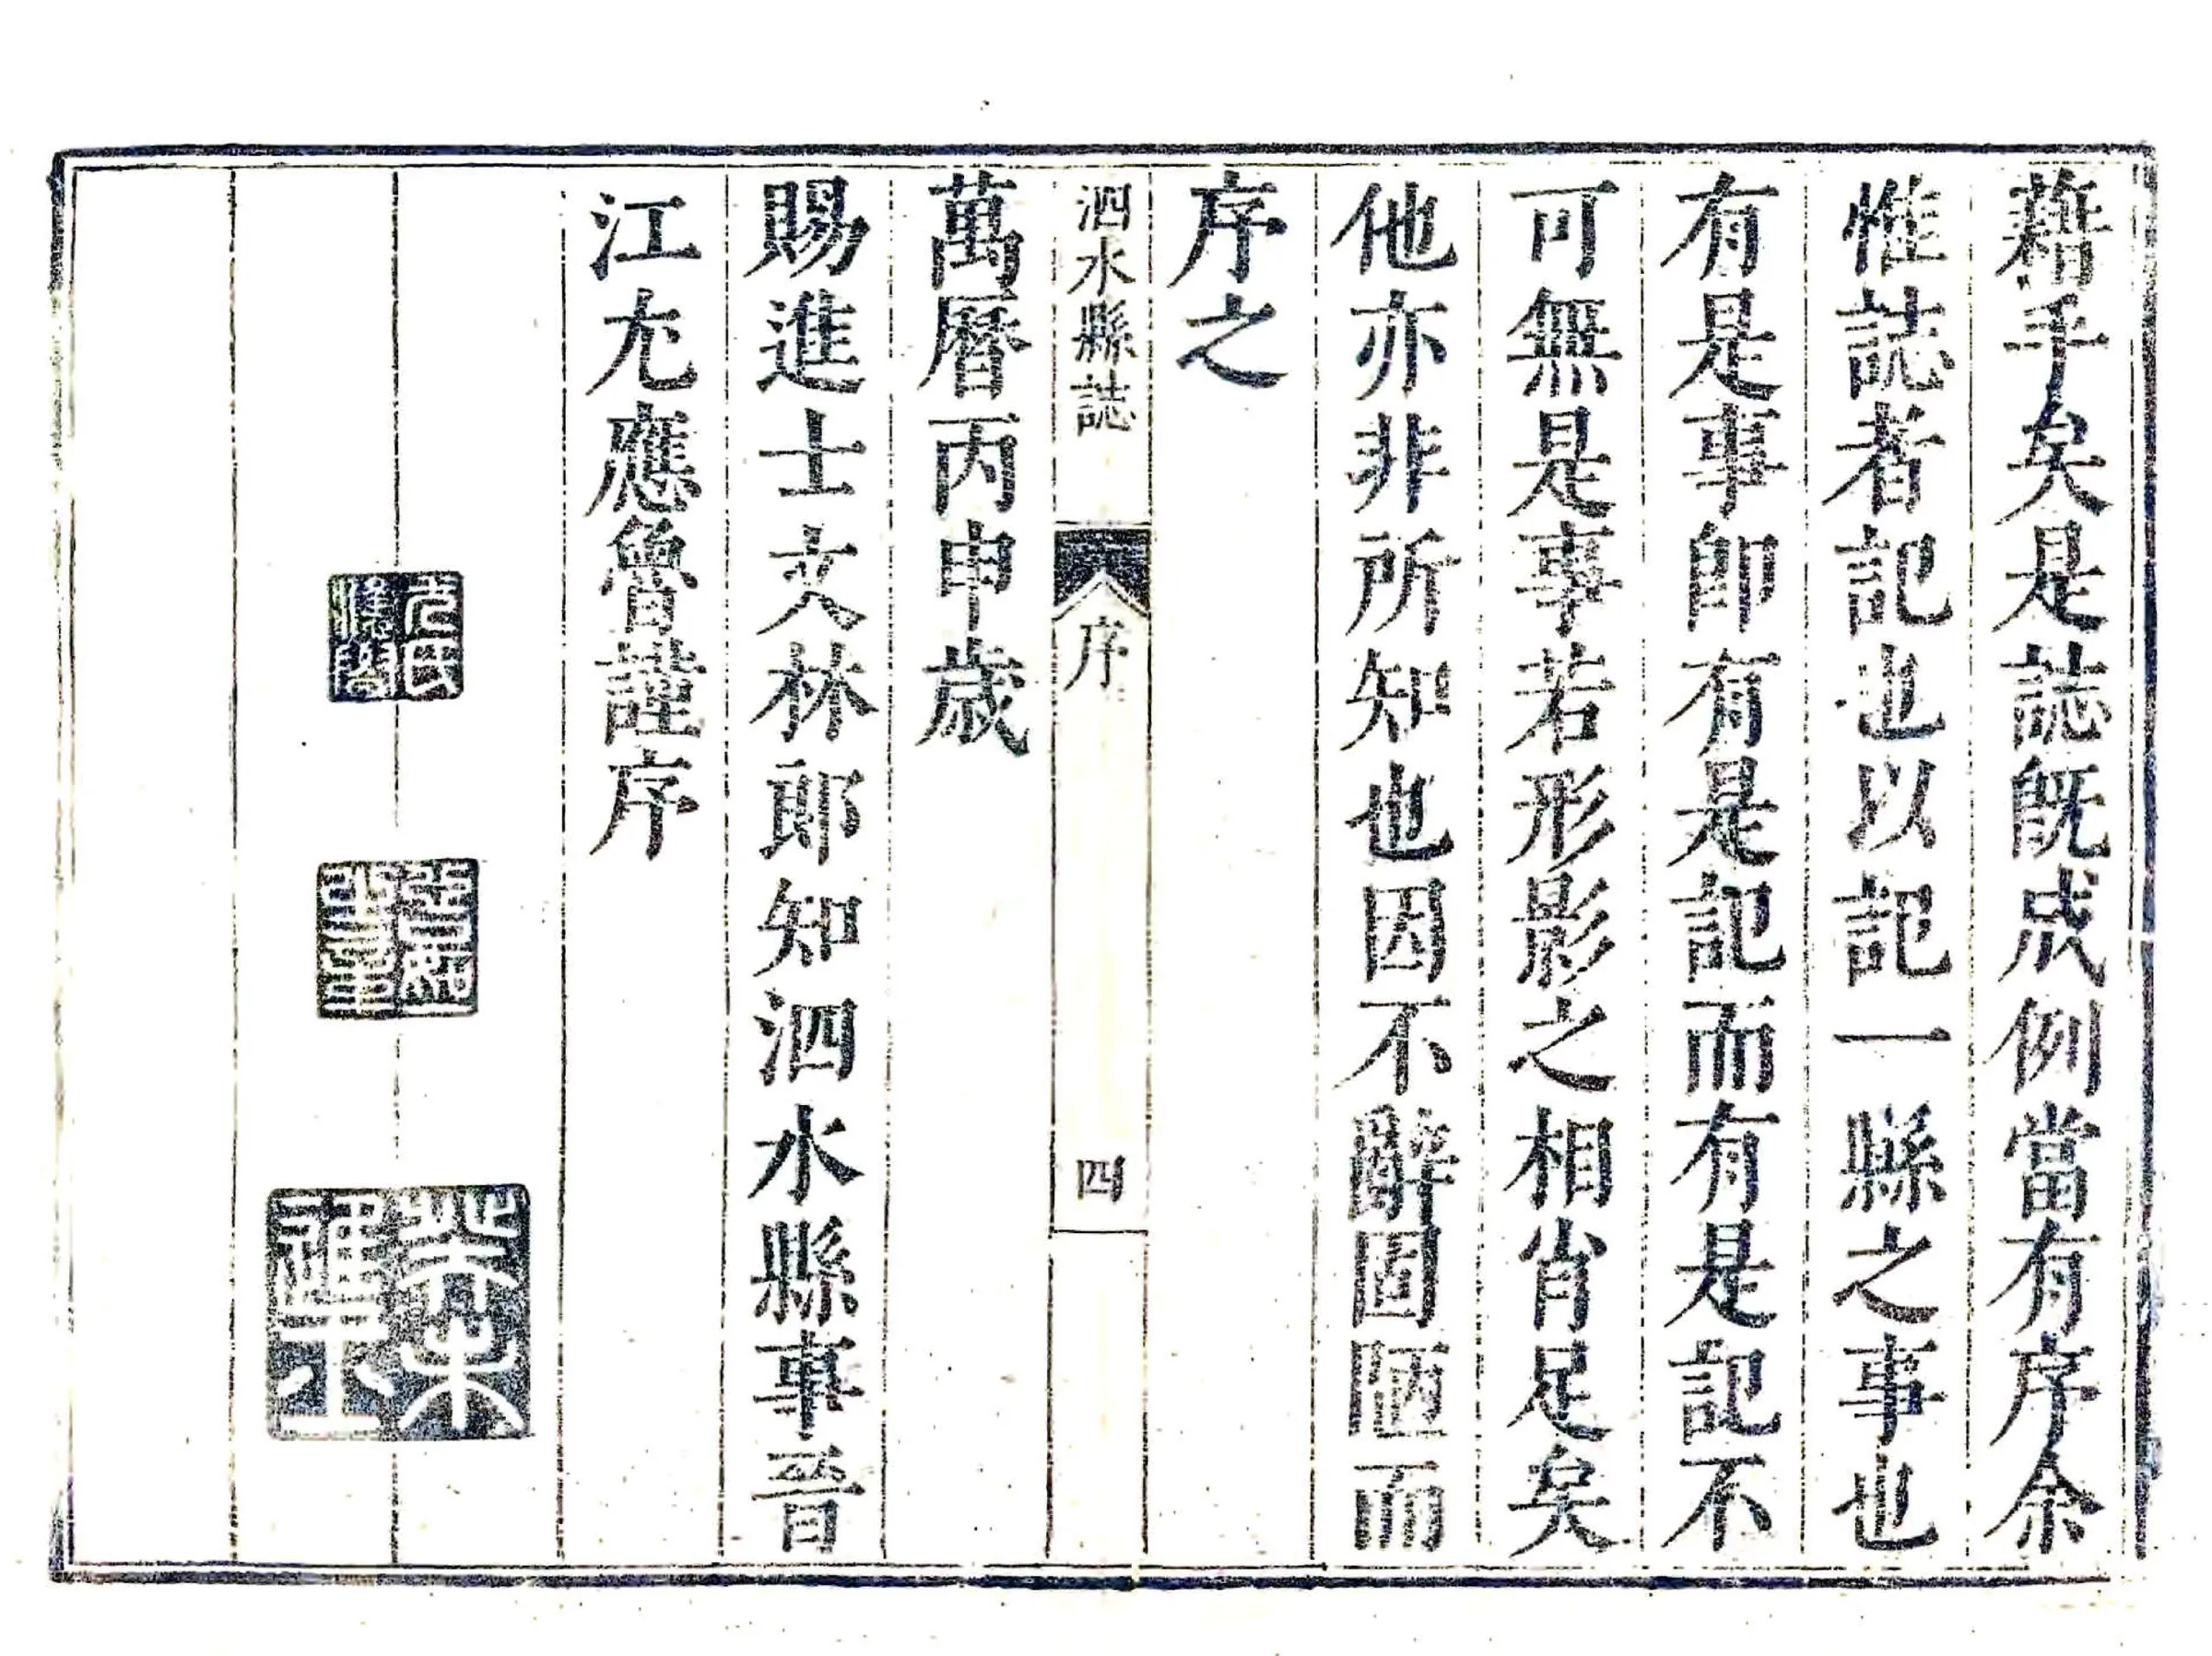 藉手矣是誌既成例當有序余
惟誌者記也以記一縣之事也
有是事卽有是記而有是記不
可無是事若形影之相肖足矣
他亦非所知也因不辭固陋而
序之
泗水縣誌
序
四
萬曆丙申歲
賜進士文林郎知泗水縣事晉
江尤應魯謹序
尤氏